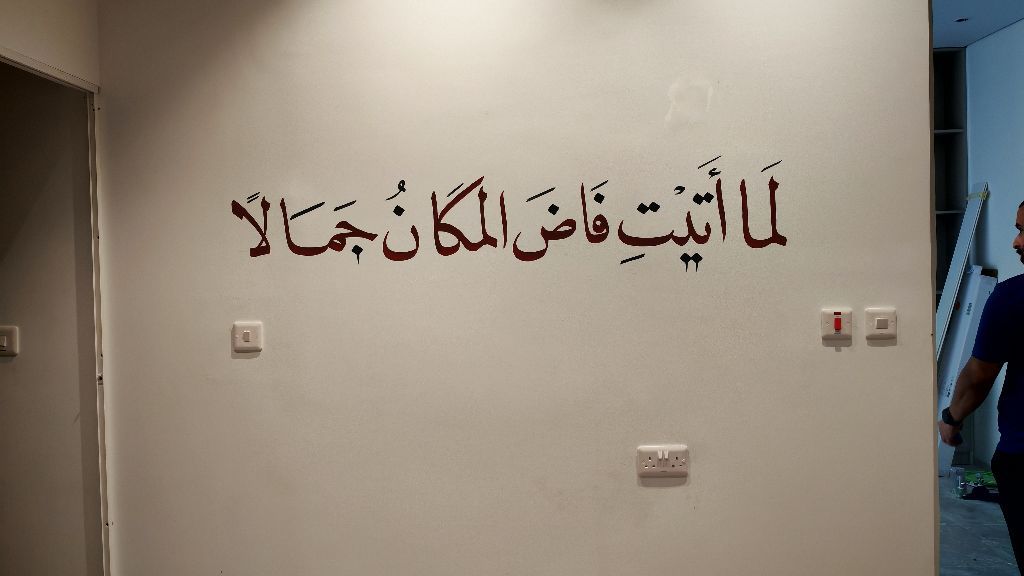 لَما أَتَيْتِ فَاضَ المَكَانُ جَمَالًا